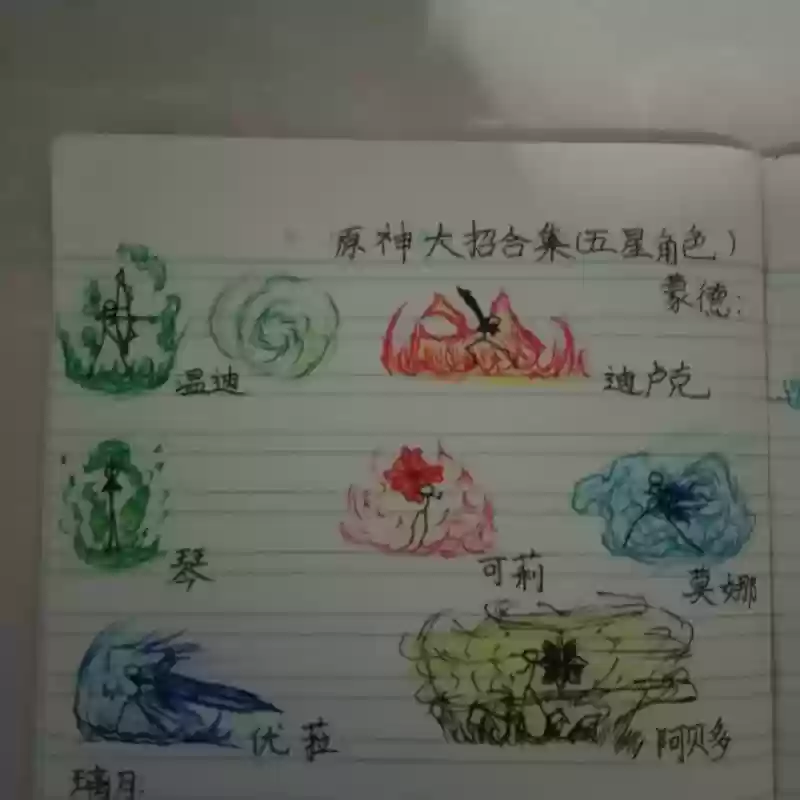 原神大招合集(五星角色)
蒙德:
温迪
迪卢克
琴
可莉
莫娜
优菈
阿贝多
璃月: